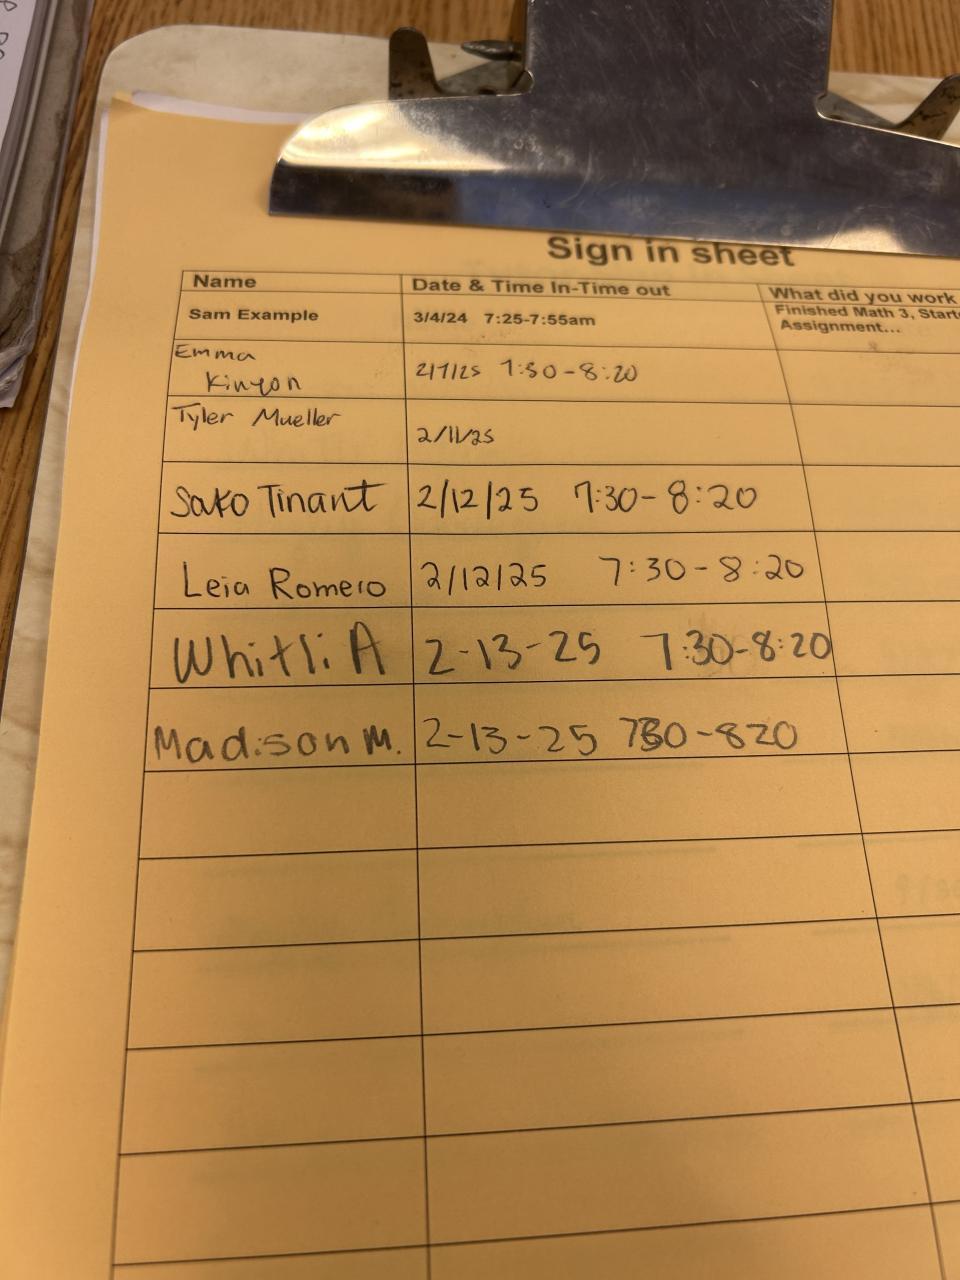 Sign in sheet
Name Date & Time In-Time out What did you work
Sam Example 3/4/24 7:25-7:55am Finished Math 3, Start
Assignment...
Emma
Kinyon 2/7/25 7:30-8:20
Tyler Mueller
2/11/25
Sako Tinant 2/12/25 7:30-8:20
Leia Romero 2/12/25 7:30-8:20
Whitli A 2-13-25 7:30-8:20
Madison M. 2-13-25 730-820